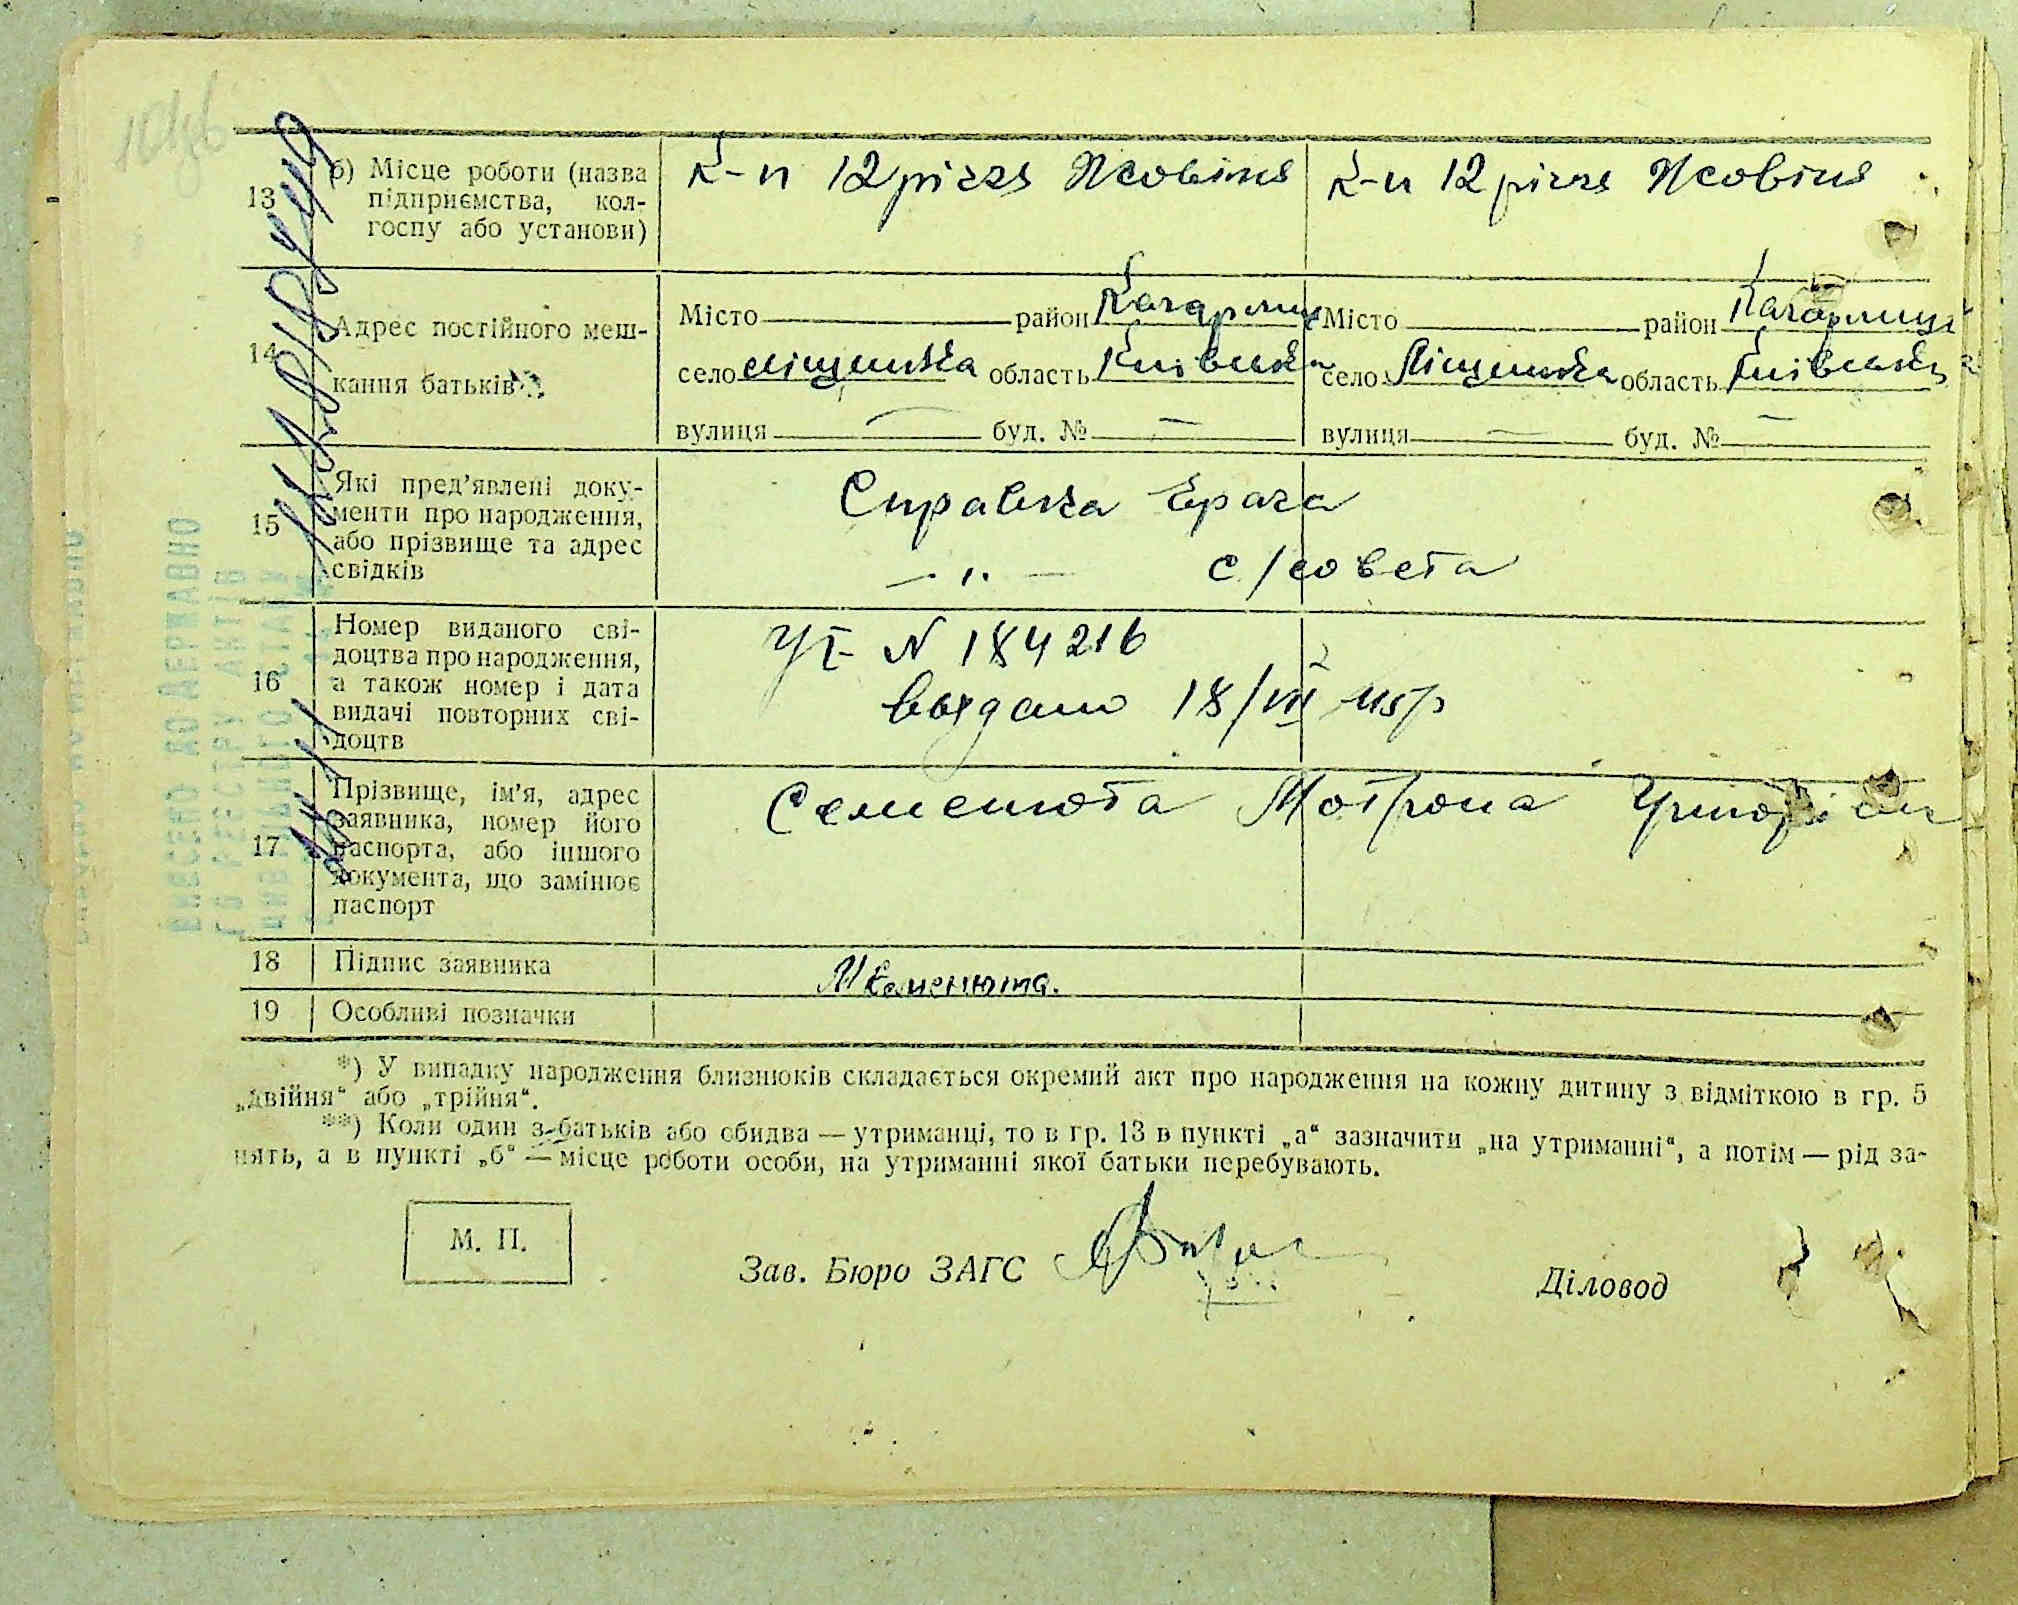 13
б) Місце роботи (назва
підприємства, кол-
госпу або установи)
К-п 12 річчя Жовтня
К-п 12 річчя Жовтня
14
Адрес постійного меш-
кання батьків
Місто район Кагарлиц
село Ліщинка область Київська
вулиця — буд. № —
Місто район Кагарлиц
село Ліщинка область Київська
вулиця — буд. № —
15
Які пред’явлені доку-
менти про народження,
або прізвище та адрес
свідків
Справка врача
— ,, — с/совета
16
Номер виданого сві-
доцтва про народження,
а також номер і дата
видачі повторних сві-
доцтв
N 184216
выдано 18/VII
17
Прізвище, ім’я, адрес
заявника, номер його
паспорта, або іншого
документа, що замінює
паспорт
Семенюта Мотрона
18
Підпис заявника
М Семенюта.
19
Особливі позначки
*) У випадку народження близнюків складається окремий акт про народження на кожну дитину з відміткою в гр. 5
„двійня“ або „трійня“.
**) Коли один з батьків або обидва — утриманці, то в гр. 13 в пункті „а“ зазначити „на утриманні“, а потім — рід за-
нять, а в пункті „б“ — місце роботи особи, на утриманні якої батьки перебувають.
М. П.
Зав. Бюро ЗАГС
Діловод